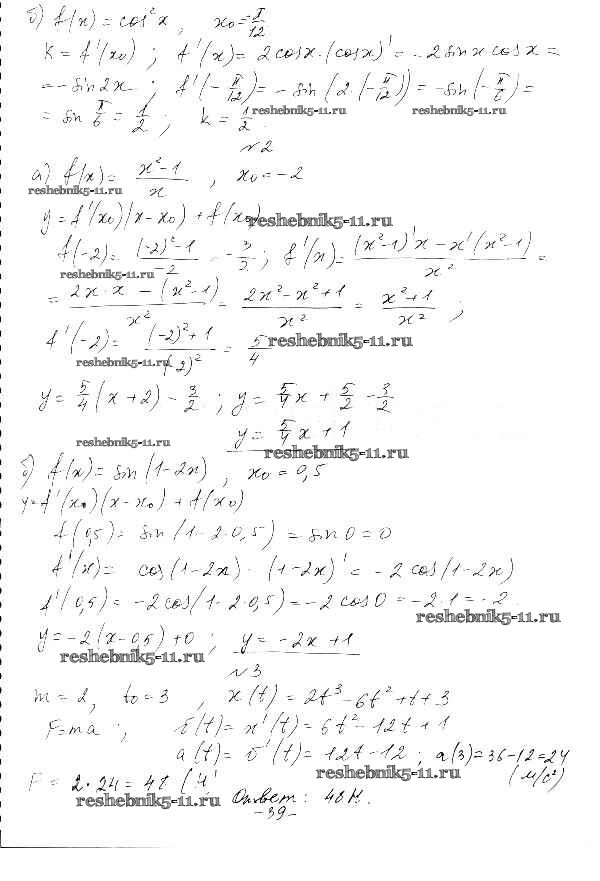 б) f(x) = cos²x, x₀ = -π/12
k = f'(x₀); f'(x) = 2cosx·(cosx)' = -2sinxcosx =
= -sin2x; f'(-π/12) = -sin(2·(-π/12)) = -sin(-π/6) =
= sin π/6 = 1/2; k = 1/2.
reshebnik5-11.ru reshebnik5-11.ru
№2
а) f(x) = (x²-1)/x, x₀ = -2
reshebnik5-11.ru
y = f'(x₀)(x-x₀) + f(x₀)
reshebnik5-11.ru
f(-2) = ((-2)²-1)/-2 = -3/2; f'(x) = ((x²-1)'x - x'(x²-1))/x² =
reshebnik5-11.ru
= (2x·x - (x²-1))/x² = (2x²-x²+1)/x² = (x²+1)/x²;
f'(-2) = ((-2)²+1)/(-2)² = 5/4
reshebnik5-11.ru
reshebnik5-11.ru
y = 5/4(x+2) - 3/2; y = 5/4x + 5/2 - 3/2
y = 5/4x + 1
reshebnik5-11.ru
reshebnik5-11.ru
б) f(x) = sin(1-2x), x₀ = 0,5
y = f'(x₀)(x-x₀) + f(x₀)
f(0,5) = sin(1-2·0,5) = sin0 = 0
f'(x) = cos(1-2x)·(1-2x)' = -2cos(1-2x)
f'(0,5) = -2cos(1-2·0,5) = -2cos0 = -2·1 = -2.
reshebnik5-11.ru
y = -2(x-0,5)+0; y = -2x+1
reshebnik5-11.ru
№3
m = 2, t₀ = 3, x(t) = 2t³-6t²+t+3
F = ma; v(t) = x'(t) = 6t²-12t+1
a(t) = v'(t) = 12t-12; a(3) = 36-12 = 24
reshebnik5-11.ru
(м/с²)
F = 2·24 = 48 (Н)
reshebnik5-11.ru
Ответ: 48 Н.
-39-